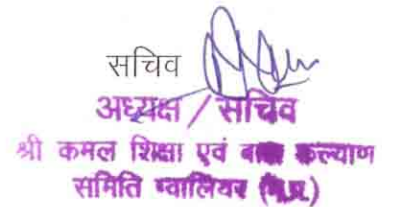 सचिव
अध्यक्ष / सचिव
श्री कमल शिक्षा एवं बाल कल्याण
समिति ग्वालियर (म.प्र.)